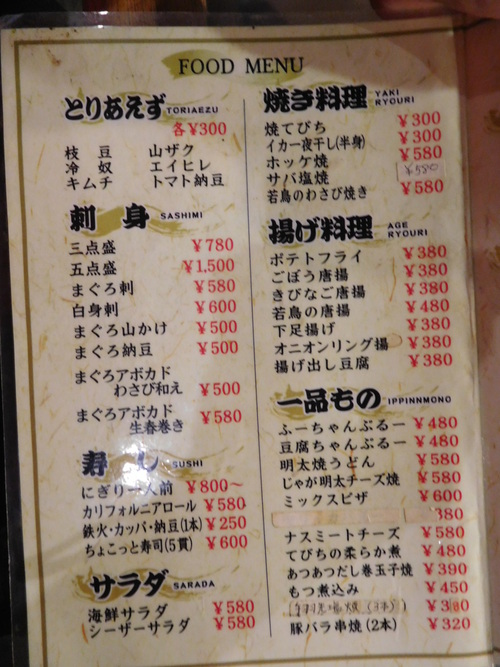 FOOD MENU
とりあえず TORIAEZU
各¥300
枝豆 山ザク
冷奴 エイヒレ
キムチ トマト納豆
刺身 SASHIMI
三点盛 ¥780
五点盛 ¥1,500
まぐろ刺 ¥580
白身刺 ¥600
まぐろ山かけ ¥500
まぐろ納豆 ¥500
まぐろアボカド
わさび和え ¥500
まぐろアボカド
生春巻き ¥580
寿し SUSHI
にぎり一人前 ¥800〜
カリフォルニアロール ¥580
鉄火・カッパ・納豆(1本) ¥250
ちょこっと寿司(5貫) ¥600
サラダ SARADA
海鮮サラダ ¥580
シーザーサラダ ¥580
焼き料理 YAKI RYOURI
焼てびち ¥300
イカ一夜干し(半身) ¥300
ホッケ焼 ¥580
サバ塩焼 ¥580
若鳥のわさび焼き ¥580
揚げ料理 AGE RYOURI
ポテトフライ ¥380
ごぼう唐揚 ¥380
きびなご唐揚 ¥380
若鳥の唐揚 ¥480
下足揚げ ¥380
オニオンリング揚 ¥380
揚げ出し豆腐 ¥380
一品もの IPPINNMONO
ふーちゃんぷるー ¥480
豆腐ちゃんぷるー ¥480
明太焼うどん ¥580
じゃが明太チーズ焼 ¥580
ミックスピザ ¥600
380
ナスミートチーズ ¥580
てびちの柔らか煮 ¥480
あつあつだし巻玉子焼 ¥390
もつ煮込み ¥450
焼(3本)
豚バラ串焼(2本) ¥320